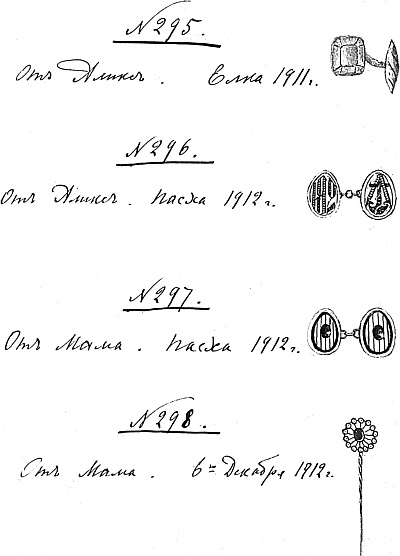 №295.
Отъ Аликсъ. Елка 1911г.
№296.
Отъ Аликсъ. Пасха 1912г.
№297.
Отъ Мама. Пасха 1912г.
№298.
Отъ Мама. 6го Декабря 1912г.